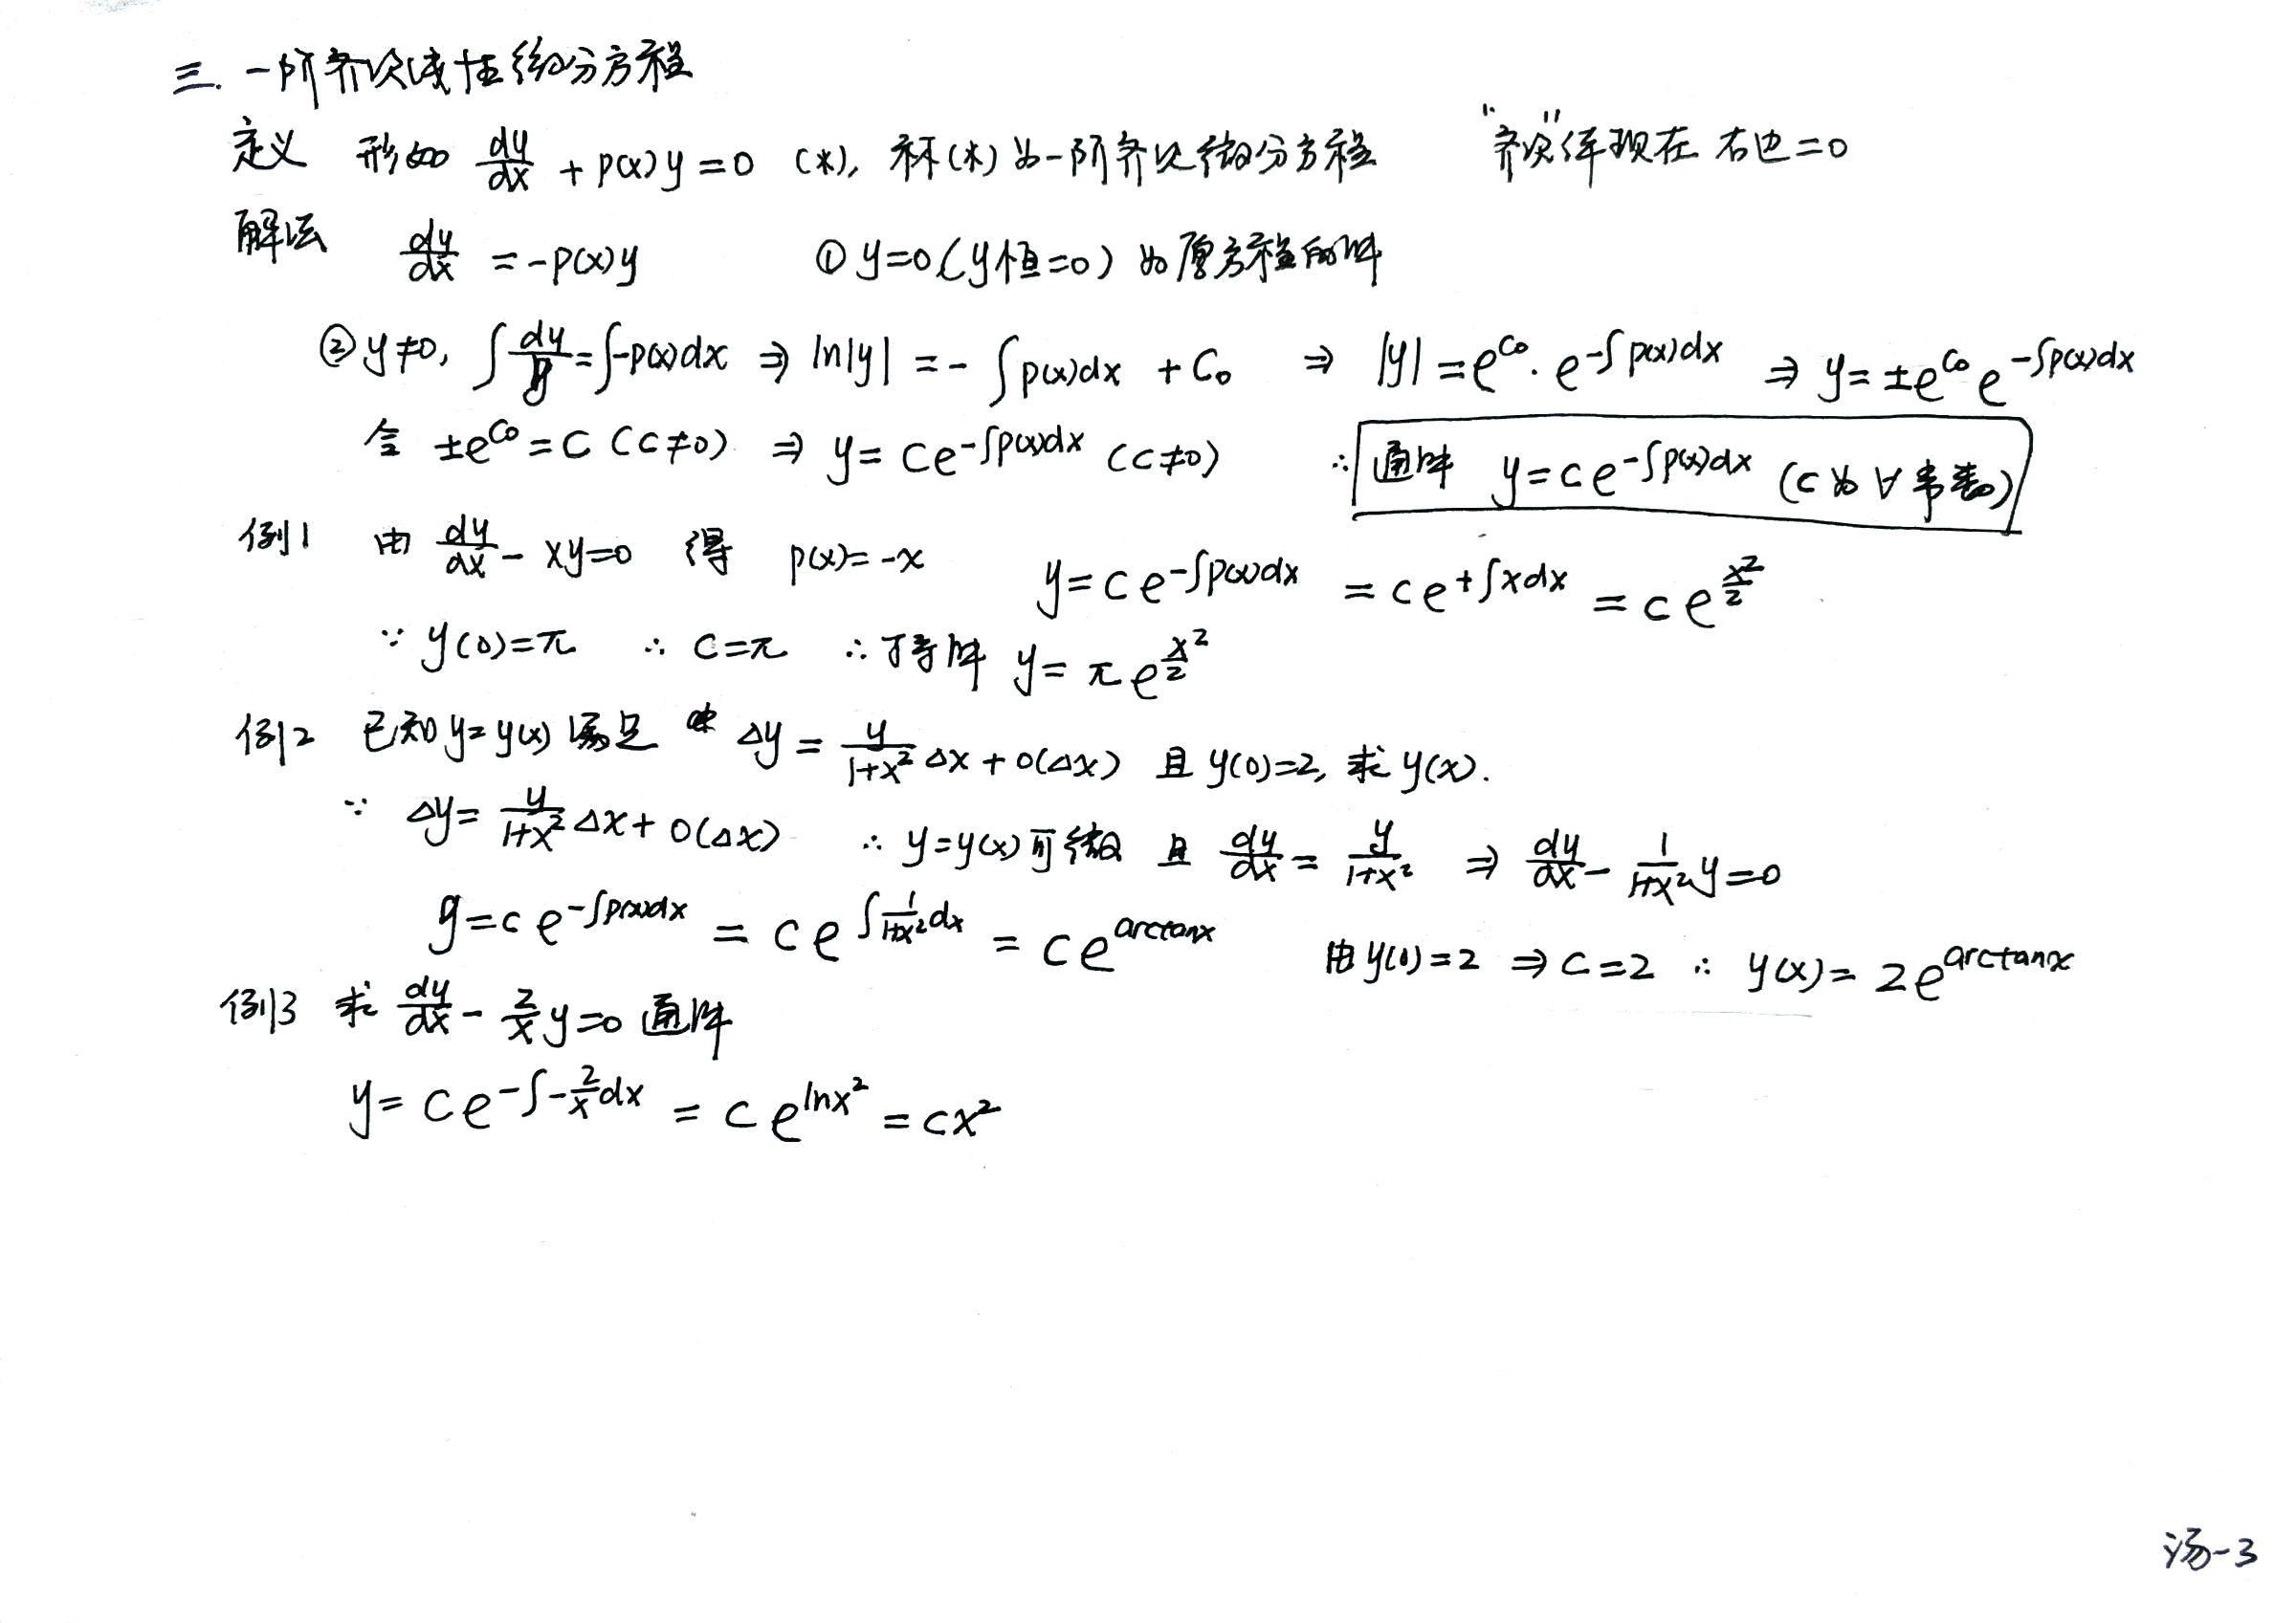 三. 一阶齐次线性微分方程
定义 形如 dy/dx + p(x)y = 0 (*), 称(*)为一阶齐次微分方程 "齐次"体现在 右边=0
解法 dy/dx = -p(x)y ① y=0 (y恒=0) 为原方程的解
② y≠0, ∫dy/y = ∫-p(x)dx ⇒ ln|y| = -∫p(x)dx + C₀ ⇒ |y| = e^{C₀}·e^{-∫p(x)dx} ⇒ y = ±e^{C₀}e^{-∫p(x)dx}
令 ±e^{C₀} = C (C≠0) ⇒ y = Ce^{-∫p(x)dx} (C≠0) ∴ 通解 y = Ce^{-∫p(x)dx} (C为∀常数)
例1 由 dy/dx - xy=0 得 p(x)=-x y = Ce^{-∫p(x)dx} = Ce^{+∫xdx} = Ce^{x²/2}
∵ y(0)=π ∴ C=π ∴ 特解 y = πe^{x²/2}
例2 已知 y=y(x) 满足 Δy = y/(1+x²) Δx + o(Δx) 且 y(0)=2, 求 y(x).
∵ Δy = y/(1+x²) Δx + o(Δx) ∴ y=y(x)可微 且 dy/dx = y/(1+x²) ⇒ dy/dx - 1/(1+x²) y = 0
y = Ce^{-∫p(x)dx} = Ce^{∫1/(1+x²)dx} = Ce^{arctanx} 由 y(0)=2 ⇒ C=2 ∴ y(x) = 2e^{arctanx}
例3 求 dy/dx - 2/x y=0 通解
y = Ce^{-∫-2/x dx} = Ce^{lnx²} = Cx²
汤-3